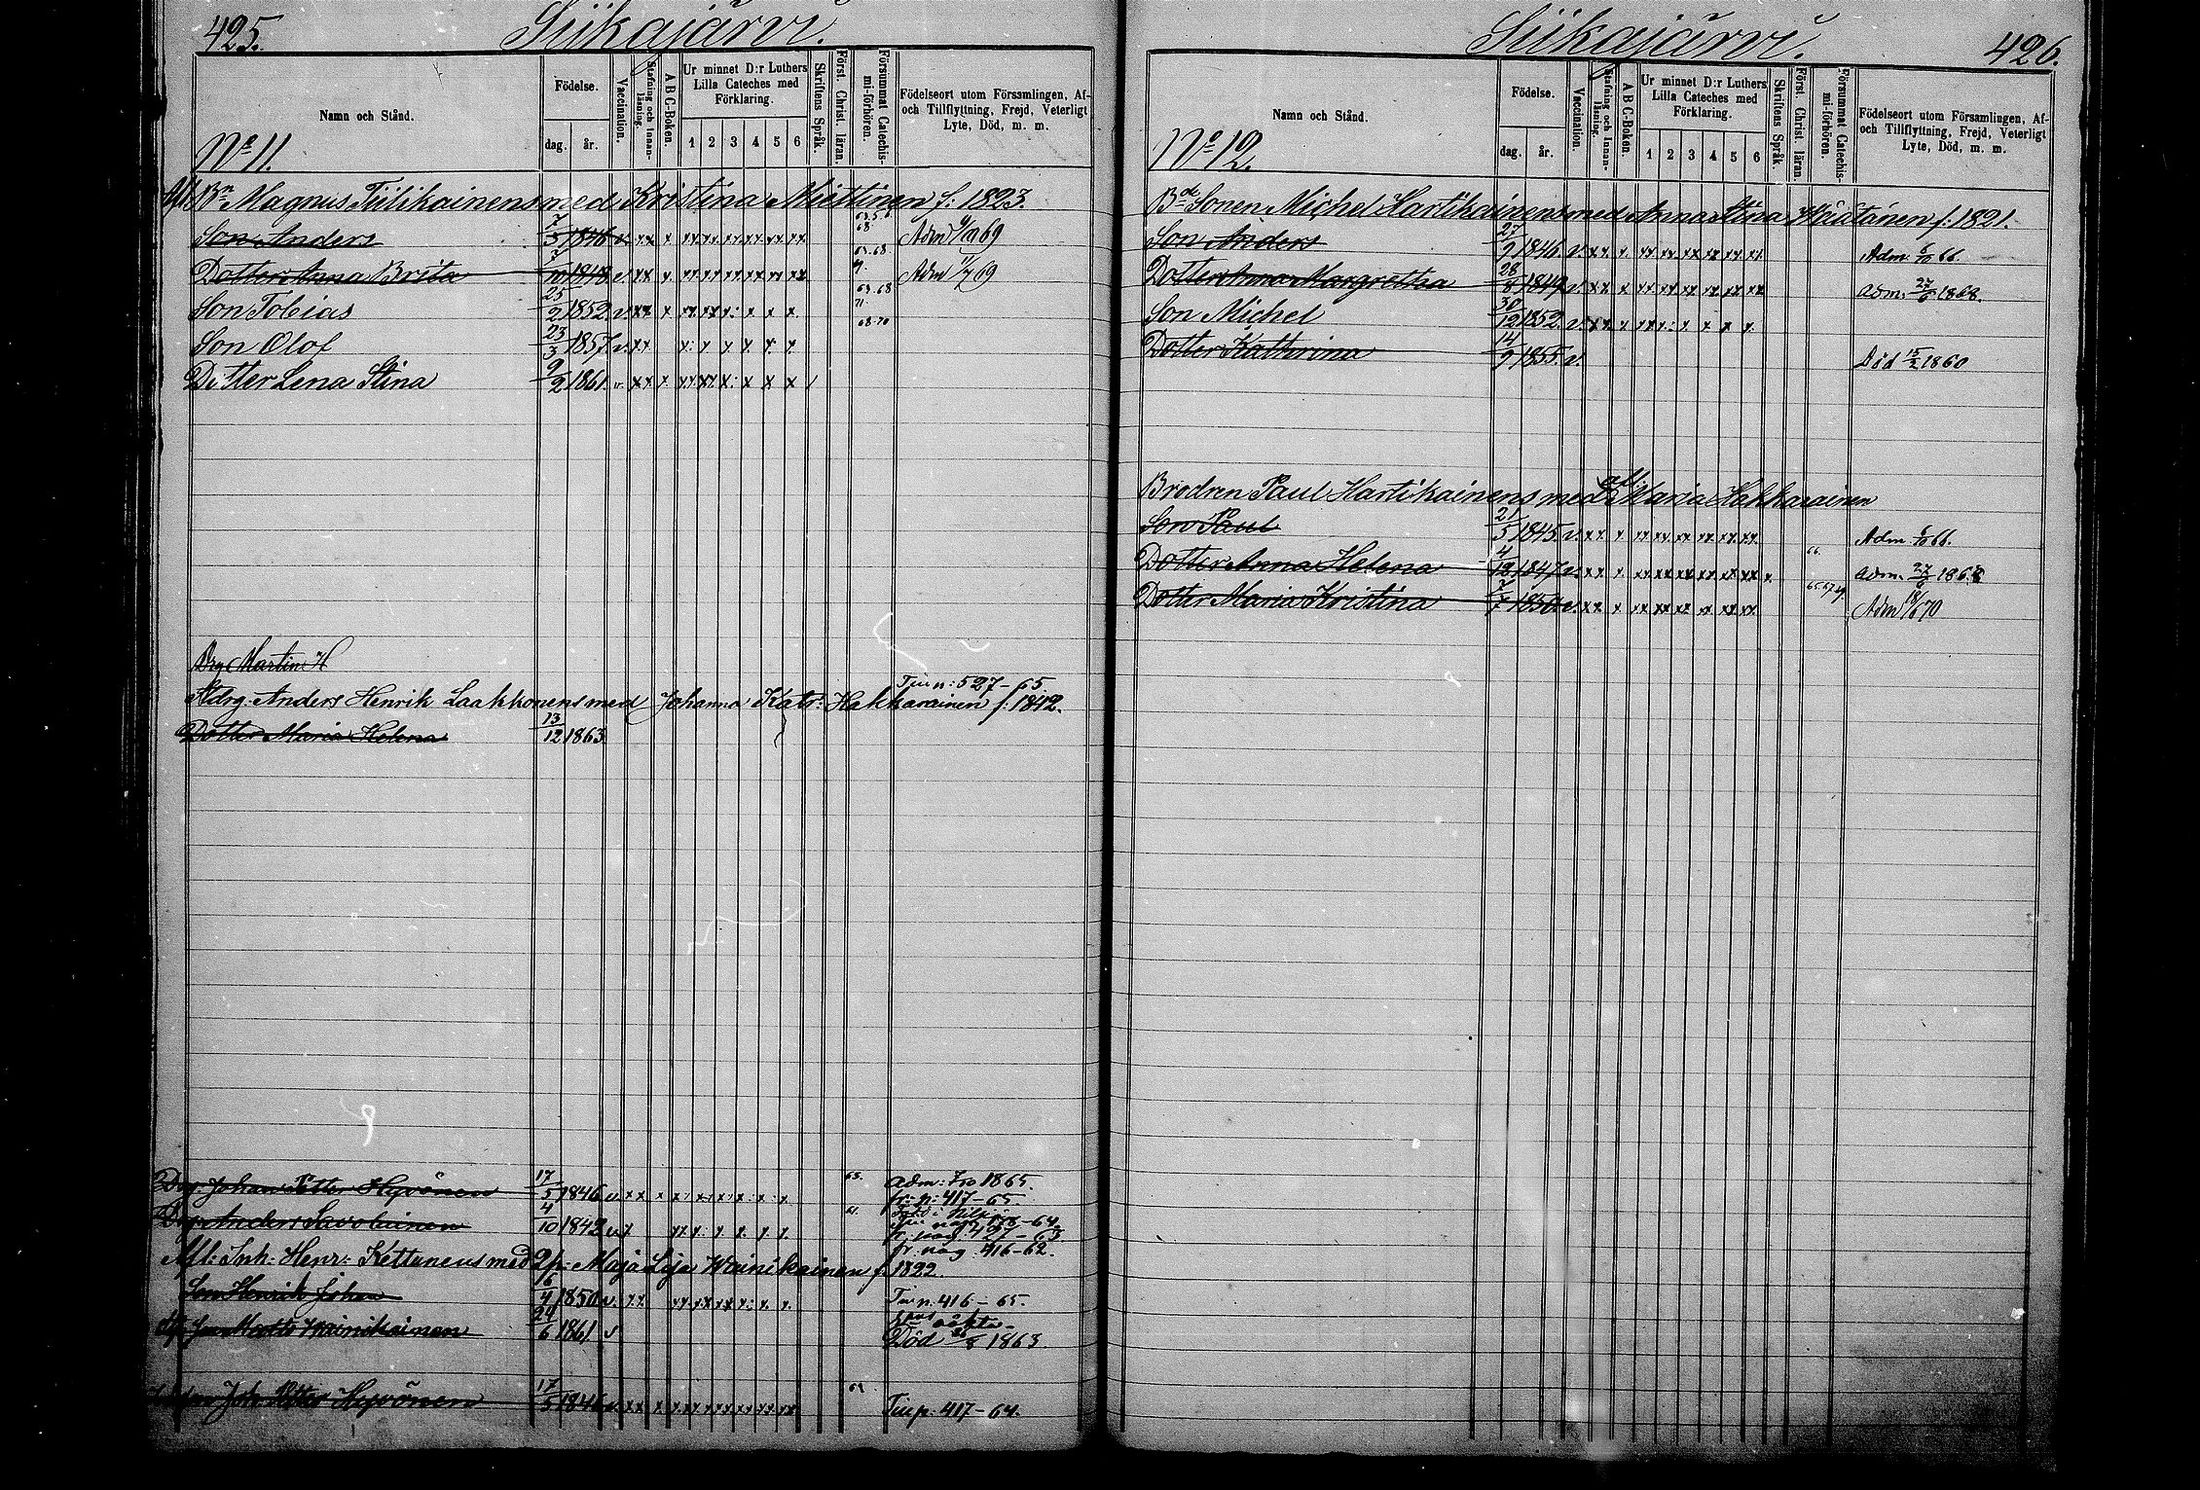 425.
Siikajärvi.
Namn och Stånd.
Födelse.
dag. år.
Vaccination.
Stafning och Innanläsning.
A B C-Boken.
Ur minnet D:r Luthers Lilla Cateches med Förklaring.
1 2 3 4 5 6
Skriftens Språk.
Först. Christ. läran.
Försummat Catechismi-förhören.
Födelseort utom Församlingen, Af- och Tillflyttning, Frejd, Veterligt Lyte, Död, m. m.
No 11.
Bn Magnus Tiilikainens med Kristina Miettinen f. 1823.
Son Anders 1846 v. Adm 69
Dotter Anna Brita 1848 v. Adm 69
Son Tobias 25/2 1852 v. 63.68 71.
Son Olof 23/3 1857 v. 68-70
Dotter Lena Stina 9/2 1861 v.
Drg Martin H
Tiu n: 527-65
Anders Henrik Laakkonens med Johanna Katr: Hakkarainen f. 1842.
Dotter Maria Helena 13/12 1863
Drg Johan Petter Hyvönen 17/5 1846 v. 63. Adm: 1865.
fr: p: 417-65.
Drg Anders Savolainen 4/10 1842 v.
fr. pag. 416-62.
Afl: Inh: Henr: Kettunens med Maja Lisa Wainikainen f. 1822.
Son Henrik Johan 6/4 1850 v. Tiu n. 416-65.
Matts Wainikainen 6 1861 v Död 1863.
Joh Petter Hyvönen 17/5 1846 v. Tiu p. 417-64.
Siikajärvi.
426.
Namn och Stånd.
Födelse.
dag. år.
Vaccination.
Stafning och Innanläsning.
A B C-Boken.
Ur minnet D:r Luthers Lilla Cateches med Förklaring.
1 2 3 4 5 6
Skriftens Språk.
Först. Christ. läran.
Försummat Catechismi-förhören.
Födelseort utom Församlingen, Af- och Tillflyttning, Frejd, Veterligt Lyte, Död, m. m.
No 12.
Sonen Michel Hartikainens med Anna Stina f. 1821.
Son Anders 27/9 1846. v. Adm. 6/10 66.
Dotter Anna Margretha 28/8 1849 v. Adm. 1868.
Son Michel 30/12 1852. v.
Dotter Kathrina 14/9 1855. v. Död 15/2 1860
Brodren Paul Hartikainens med Maria Hakkarainen
Son Paul 21/5 1845. v. Adm. 6/10 66.
Dotter Anna Helena 4/12 1847 v. 66. Adm. 1868
Dotter Maria Kristina 1850 v. 65.67.69. Adm 70